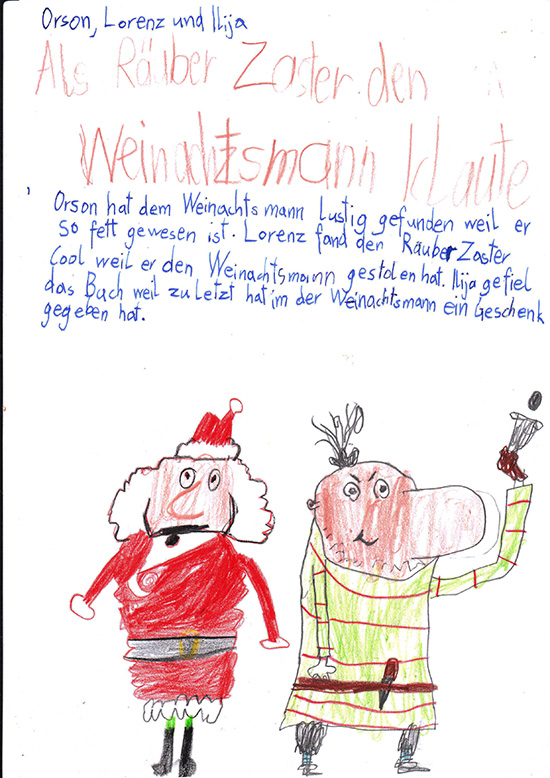 Orson, Lorenz und Ilija
Als Räuber Zaster den
Weinachtsmann klaute
Orson hat dem Weinachts mann Lustig gefunden weil er
so fett gewesen ist. Lorenz fand den Räuber Zaster
Cool weil er den Weinachtsmann gestolen hat. Ilija gefiel
das Buch weil zuletzt hat im der Weinachtsmann ein Geschenk
gegeben hat.